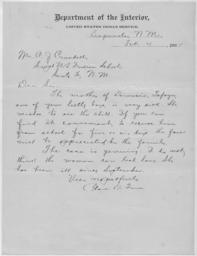 Department of the Interior,
UNITED STATES INDIAN SERVICE,
N. M.
Mr. C. J. Crandall
Supt U.S. Indian School
Santa Fe, N. M.
Dear Sir:
The mother of
one of your little boys is very sick. She
wishes to see the child. If you can
find it convenient to excuse him
from school for five or six days the favor
will be appreciated by the family.
The case is genuine. I do not
think the woman can last long. She
has been ill since September.
Very respectfully